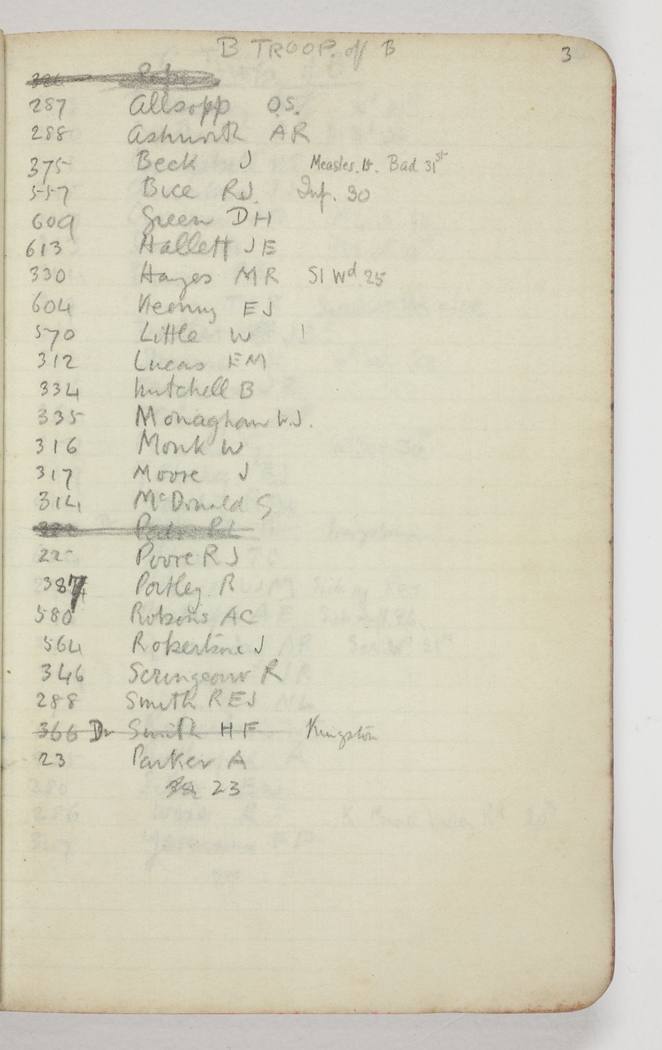 B TROOP. of B 3
287 Allsopp O.S.
288 Ashworth AR
375 Beck J Measles. Bad 31st
557 Bice RJ. Inf. 30
609 Green DH
613 Hallett JE
330 Hayes MR Sl Wd 25
604 Heenny EJ
570 Little W
312 Lucas EM
334 Mitchell B
335 Monaghan W.J.
316 Monk W
317 Moore J
314 McDonald G
Poore R J
387 Portley. R
580 Robsons AC
564 Robertson J
346 Scringeour R
288 Smith REJ
366 Dr Smith HF Kingston
23 Parker A
23